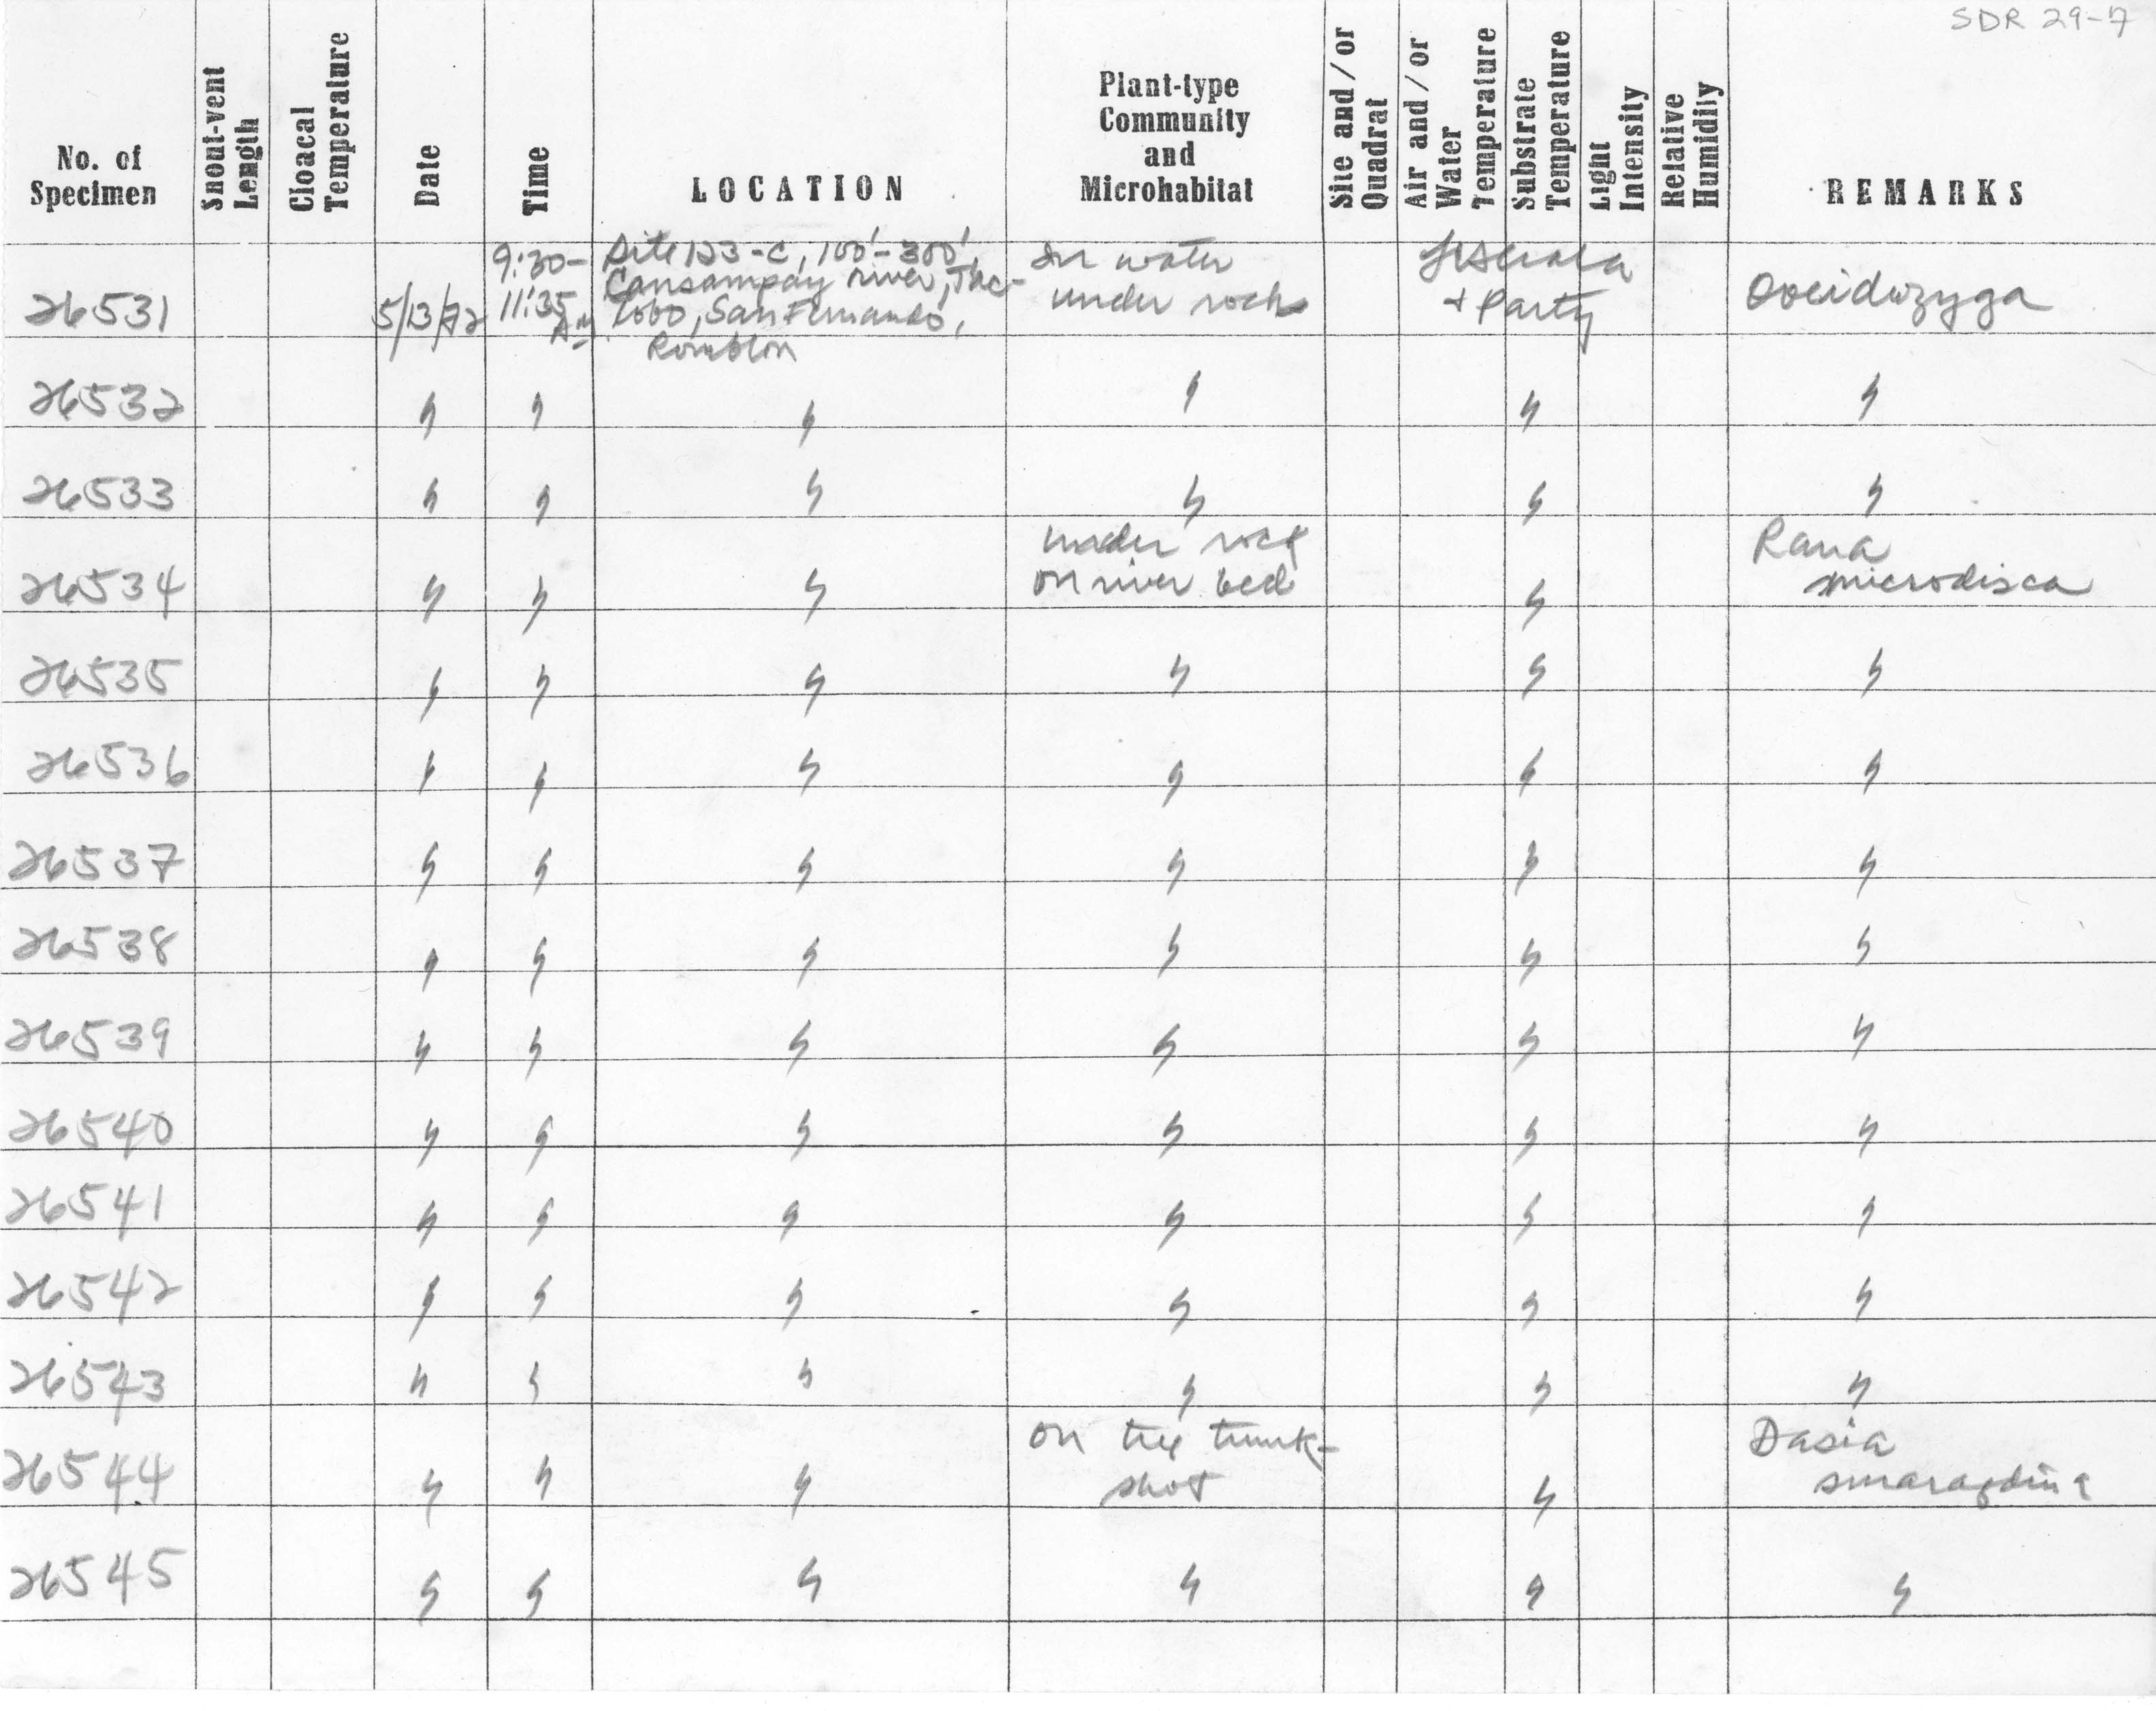 SDR 29-7
No. of Specimen
Snout-vent Length
Cloacal Temperature
Date
Time
LOCATION
Plant-type Community and Microhabitat
Site and/or Quadrat
Air and/or Water Temperature
Substrate Temperature
Light Intensity
Relative Humidity
REMARKS
26531
5/13/72
9:30-
11:35
Am
Site 123-C, 100'-300',
Cansampay river, Tac-
lobo, San Fernando,
Romblon
In water
under rocks
& Party
Ooeidozyga
26532 " " " " " "
26533 " " " " " "
26534 " " "
under rock
on river bed
"
Rana
microdisca
26535 " " " " " "
26536 " " " " " "
26537 " " " " " "
26538 " " " " " "
26539 " " " " " "
26540 " " " " " "
26541 " " " " " "
26542 " " " " " "
26543 " " " " " "
26544 " " "
on tree trunk-
shot
"
Dasia
smaragdina
26545 " " " " " "